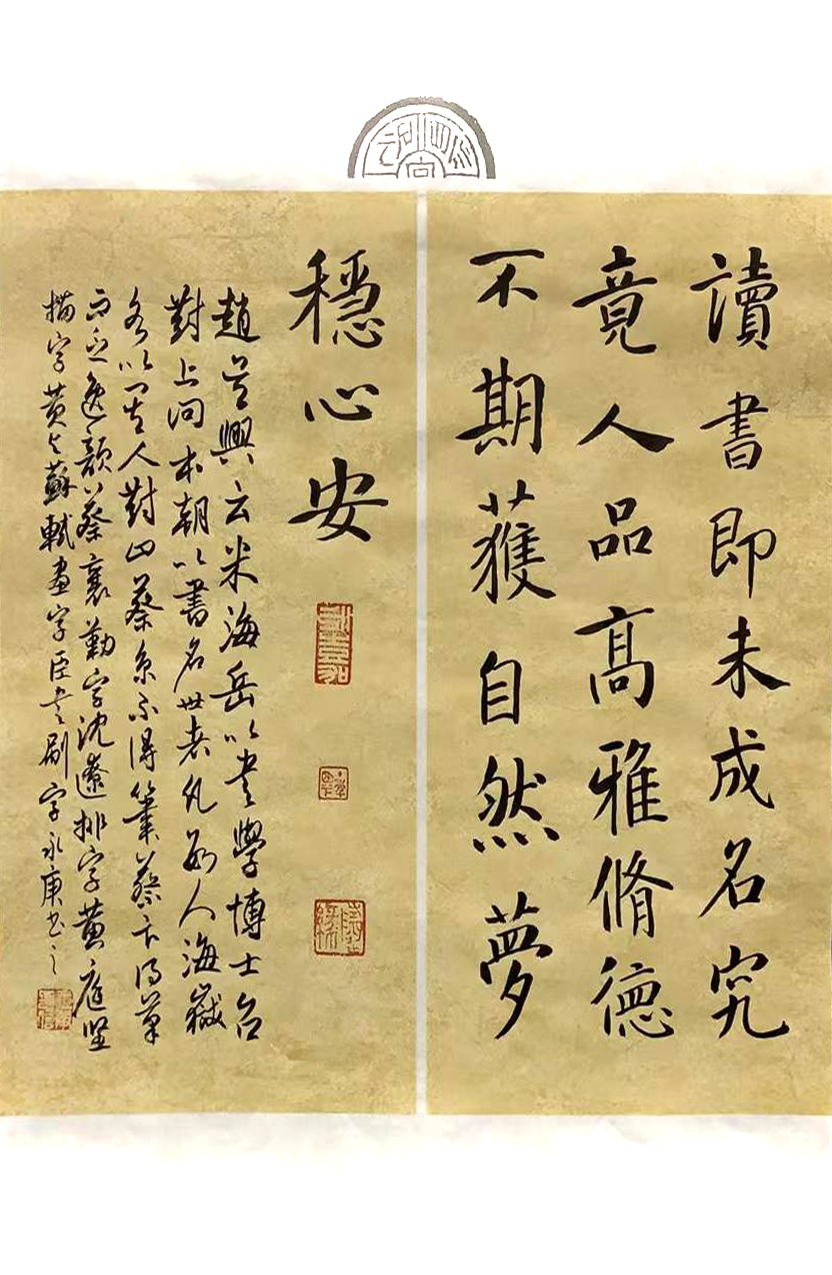 讀書即未成名究
竟人品髙雅脩德
不期獲自然夢
穩心安
趙吳興云米海岳以書學博士召
對上問本朝以書名世者凡數人海嶽
各以其人對曰蔡京不得筆蔡卞得筆
而乏逸韻蔡襄勤字沈遼排字黃庭堅
描字黃蘇軾畫字臣書刷字永庚书之